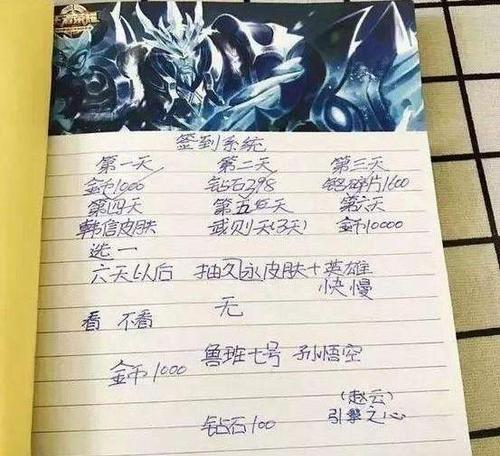 王者荣耀
签到系统
第一天 第二天 第三天
金币1000 钻石298 铭碎片1600
第四天 第五天 第六天
韩信皮肤 武则天(3天) 金币10000
选一
六天以后 抽久永皮肤+英雄
快慢
看 不看 无
金币1000 鲁班七号 孙悟空
(赵云)
钻石100 引擎之心